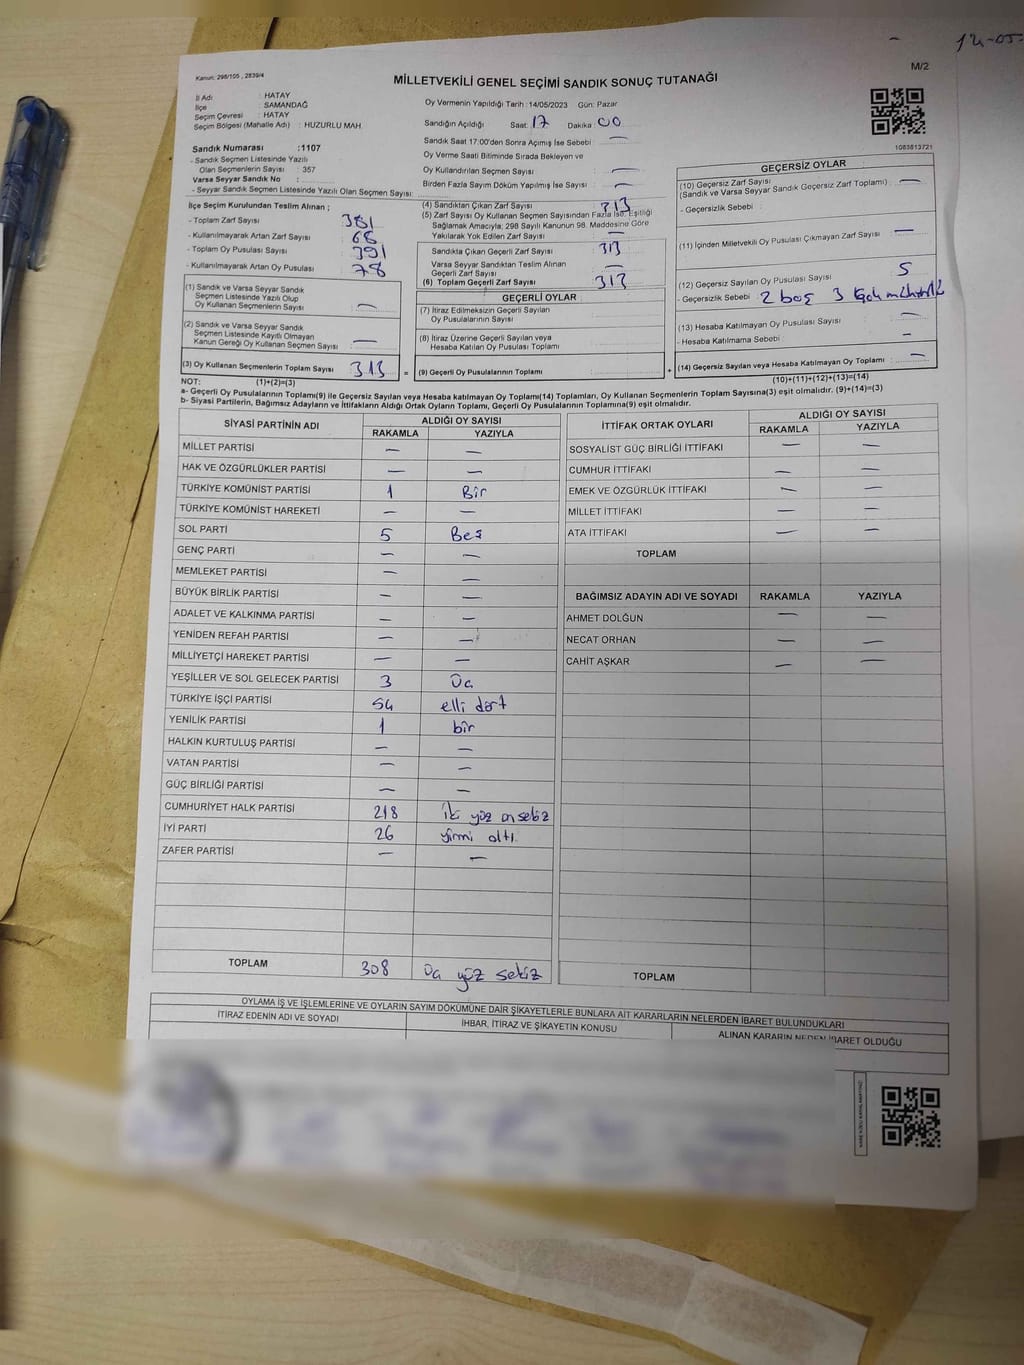 12-05-
Kanun: 298/105 , 2839/4
MİLLETVEKİLİ GENEL SEÇİMİ SANDIK SONUÇ TUTANAĞI
M/2
İl Adı : HATAY
İlçe : SAMANDAĞ
Seçim Çevresi : HATAY
Seçim Bölgesi (Mahalle Adı) : HUZURLU MAH.
Oy Vermenin Yapıldığı Tarih : 14/05/2023 Gün: Pazar
Sandığın Açıldığı Saat: 17 Dakika 00
Sandık Saat 17:00'den Sonra Açımış İse Sebebi : —
Oy Verme Saati Bitiminde Sırada Bekleyen ve
Oy Kullandırılan Seçmen Sayısı : —
Birden Fazla Sayım Döküm Yapılmış İse Sayısı : —
1083813721
Sandık Numarası :1107
- Sandık Seçmen Listesinde Yazılı
Olan Seçmenlerin Sayısı : 357
Varsa Seyyar Sandık No :
- Seyyar Sandık Seçmen Listesinde Yazılı Olan Seçmen Sayısı:
İlçe Seçim Kurulundan Teslim Alınan ;
- Toplam Zarf Sayısı 381
- Kullanılmayarak Artan Zarf Sayısı 68
- Toplam Oy Pusulası Sayısı 391
- Kullanılmayarak Artan Oy Pusulası 78
(1) Sandık ve Varsa Seyyar Sandık
Seçmen Listesinde Yazılı Olup
Oy Kullanan Seçmenlerin Sayısı : —
(2) Sandık ve Varsa Seyyar Sandık
Seçmen Listesinde Kayıtlı Olmayan
Kanun Gereği Oy Kullanan Seçmen Sayısı : —
(3) Oy Kullanan Seçmenlerin Toplam Sayısı : 313 =
(4) Sandıktan Çıkan Zarf Sayısı : 313
(5) Zarf Sayısı Oy Kullanan Seçmen Sayısından Fazla İse, Eşitliği
Sağlamak Amacıyla; 298 Sayılı Kanunun 98. Maddesine Göre
Yakılarak Yok Edilen Zarf Sayısı : —
Sandıkta Çıkan Geçerli Zarf Sayısı : 313
Varsa Seyyar Sandıktan Teslim Alınan
Geçerli Zarf Sayısı : —
(6) Toplam Geçerli Zarf Sayısı : 313
GEÇERLİ OYLAR
(7) İtiraz Edilmeksizin Geçerli Sayılan
Oy Pusulalarının Sayısı :
(8) İtiraz Üzerine Geçerli Sayılan veya
Hesaba Katılan Oy Pusulası Toplamı :
(9) Geçerli Oy Pusulalarının Toplamı : +
GEÇERSİZ OYLAR
(10) Geçersiz Zarf Sayısı
(Sandık ve Varsa Seyyar Sandık Geçersiz Zarf Toplamı) : —
- Geçersizlik Sebebi :
(11) İçinden Milletvekili Oy Pusulası Çıkmayan Zarf Sayısı : —
(12) Geçersiz Sayılan Oy Pusulası Sayısı : 5
- Geçersizlik Sebebi : 2 boş 3
(13) Hesaba Katılmayan Oy Pusulası Sayısı : —
- Hesaba Katılmama Sebebi : —
(14) Geçersiz Sayılan veya Hesaba Katılmayan Oy Toplamı : —
NOT: (1)+(2)=(3)
(10)+(11)+(12)+(13)=(14)
a- Geçerli Oy Pusulalarının Toplamı(9) ile Geçersiz Sayılan veya Hesaba katılmayan Oy Toplam(14) Toplamları, Oy Kullanan Seçmenlerin Toplam Sayısına(3) eşit olmalıdır. (9)+(14)=(3)
b- Siyasi Partilerin, Bağımsız Adayların ve İttifakların Aldığı Ortak Oyların Toplamı, Geçerli Oy Pusulalarının Toplamına(9) eşit olmalıdır.
SİYASİ PARTİNİN ADI ALDIĞI OY SAYISI
RAKAMLA YAZIYLA
MİLLET PARTİSİ — —
HAK VE ÖZGÜRLÜKLER PARTİSİ — —
TÜRKİYE KOMÜNİST PARTİSİ 1 Bir
TÜRKİYE KOMÜNİST HAREKETİ — —
SOL PARTİ 5 Beş
GENÇ PARTİ — —
MEMLEKET PARTİSİ — —
BÜYÜK BİRLİK PARTİSİ — —
ADALET VE KALKINMA PARTİSİ — —
YENİDEN REFAH PARTİSİ — —
MİLLİYETÇİ HAREKET PARTİSİ — —
YEŞİLLER VE SOL GELECEK PARTİSİ 3 Üç
TÜRKİYE İŞÇİ PARTİSİ 54 elli dört
YENİLİK PARTİSİ 1 bir
HALKIN KURTULUŞ PARTİSİ — —
VATAN PARTİSİ — —
GÜÇ BİRLİĞİ PARTİSİ — —
CUMHURİYET HALK PARTİSİ 218 iki yüz on sekiz
İYİ PARTİ 26 yirmi altı
ZAFER PARTİSİ — —
TOPLAM 308 Üç yüz sekiz
İTTİFAK ORTAK OYLARI ALDIĞI OY SAYISI
RAKAMLA YAZIYLA
SOSYALİST GÜÇ BİRLİĞİ İTTİFAKI — —
CUMHUR İTTİFAKI — —
EMEK VE ÖZGÜRLÜK İTTİFAKI — —
MİLLET İTTİFAKI — —
ATA İTTİFAKI — —
TOPLAM
BAĞIMSIZ ADAYIN ADI VE SOYADI RAKAMLA YAZIYLA
AHMET DOLĞUN — —
NECAT ORHAN — —
CAHİT AŞKAR — —
TOPLAM
OYLAMA İŞ VE İŞLEMLERİNE VE OYLARIN SAYIM DÖKÜMÜNE DAİR ŞİKAYETLERLE BUNLARA AİT KARARLARIN NELERDEN İBARET BULUNDUKLARI
İTİRAZ EDENİN ADI VE SOYADI İHBAR, İTİRAZ VE ŞİKAYETİN KONUSU ALINAN KARARIN NEDEN İBARET OLDUĞU